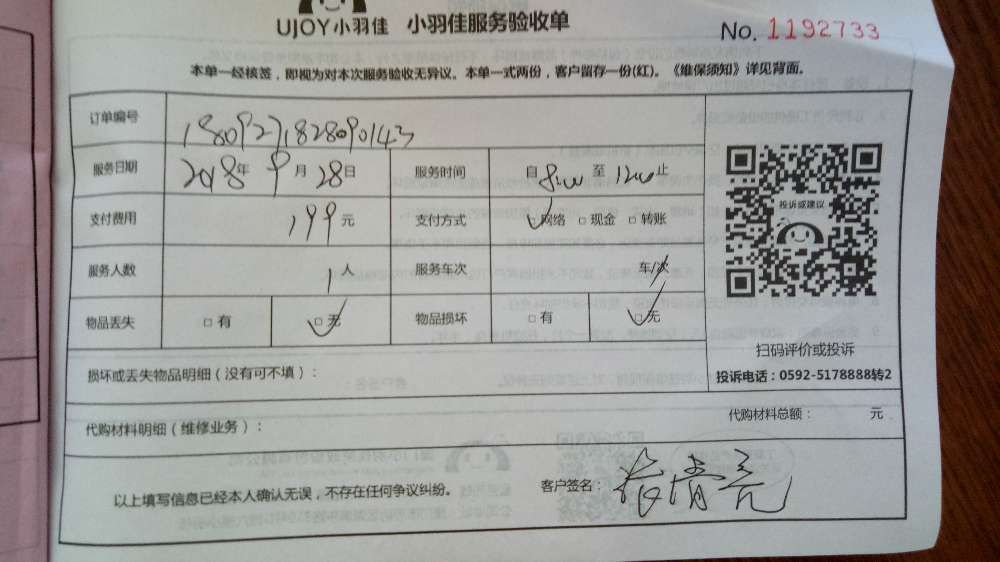 UJOY小羽佳 小羽佳服务验收单
No. 1192733
本单一经核签，即视为对本次服务验收无异议。本单一式两份，客户留存一份(红)。《维保须知》详见背面。
订单编号 1809271828090143
服务日期 2018年 9月 28日 服务时间 自 8:00 至 12:00 止
支付费用 199 元 支付方式 □网络 □现金 □转账
服务人数 1 人 服务车次 车/次
物品丢失 □有 □无 物品损坏 □有 □无
投诉或建议
扫码评价或投诉
投诉电话：0592-5178888转2
损坏或丢失物品明细（没有可不填）：
代购材料明细（维修业务）： 代购材料总额： 元
以上填写信息已经本人确认无误，不存在任何争议纠纷。 客户签名：